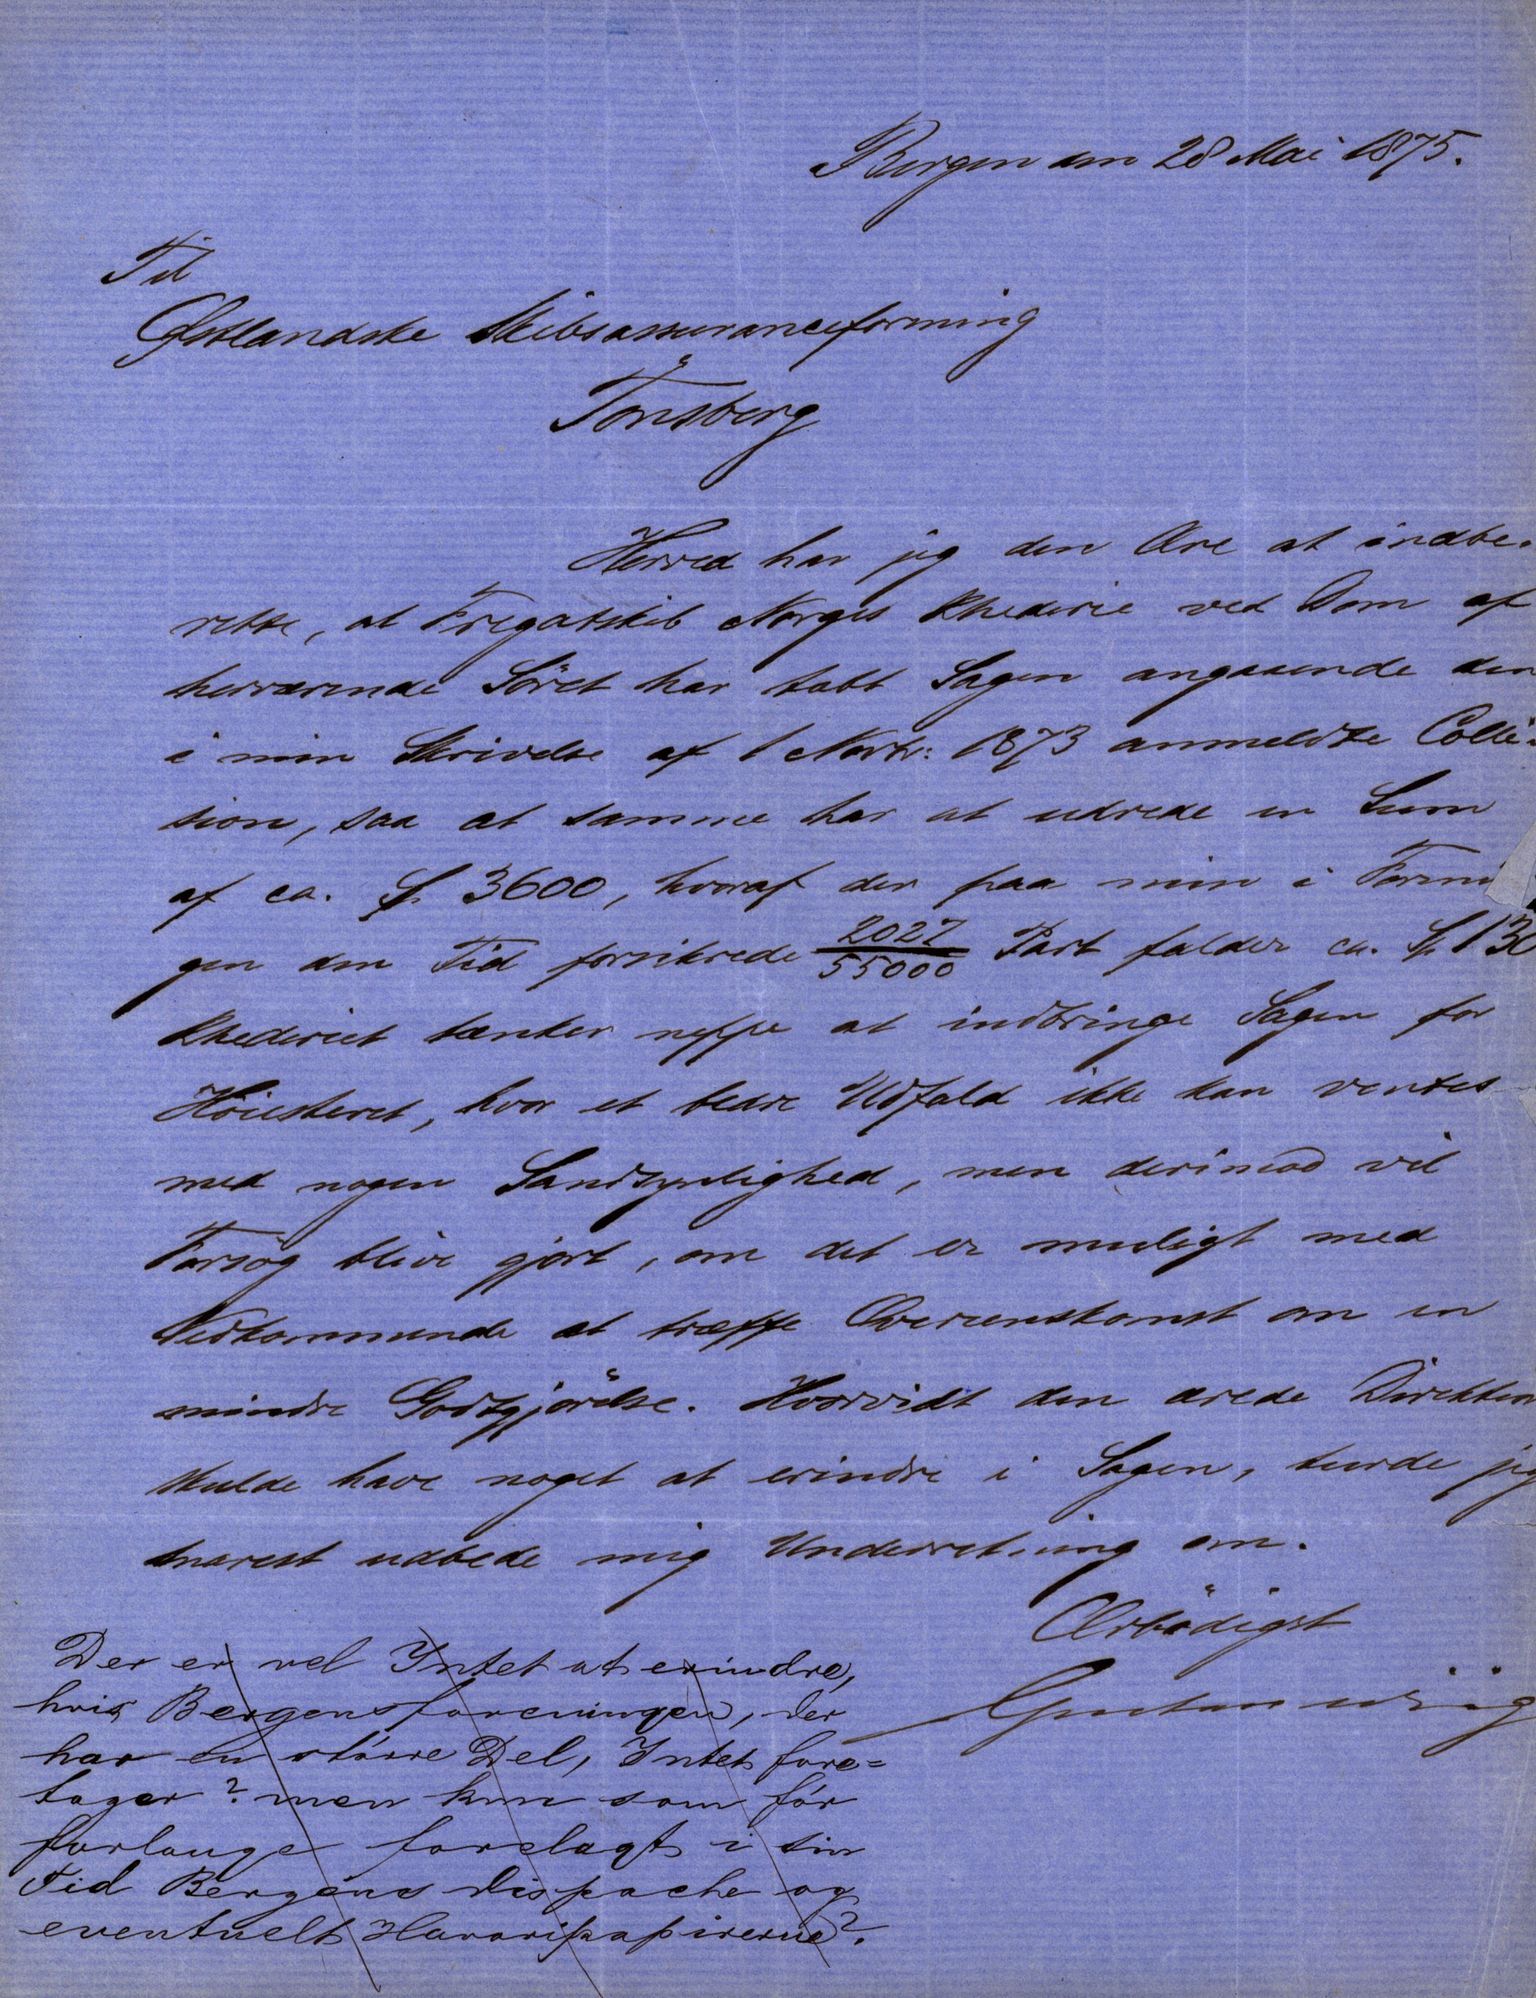 Bergen den 28 Mai 1875.
Til
Østlandske Skibsassuranceforening
Tönsberg
Herved har jeg den Ære at indbe-
rette, at Fregatskib Norges Rhederie ved Dom af
herværende Söret har tabt Sagen angaaende den
i min Skrivelse af 1 Novbr: 1873 anmeldte Colli-
sion, saa at samme har at udrede en Sum
af ca. Sp. 3600, hvoraf der paa min i Foreni
gen den Tid forsikrede 2027/55000 Part falder ca. Sp. 130
Rhederiet tænker neppe at indbringe Sagen for
Höiesteret, hvor et bedre Udfald ikke kan ventes
med nogen Sandsynlighed, men derimod vil
Forsög blive gjort, om det er muligt med
Vedkommende at træffe Overenskomst om en
mindre Godtgjörelse. Hvorvidt den ærede Direktion
skulde have noget at erindre i Sagen, turde jeg
snarest udbede mig Underretning om.
Ærbödigst
Der er vel Intet at erindre,
hvis Bergensforeningen, der
har en större Del, Intet fore=
tager? men kun som för
forlange forelagt i sin
Tid Bergens dispache og
eventuelt Havaripapirerne?.